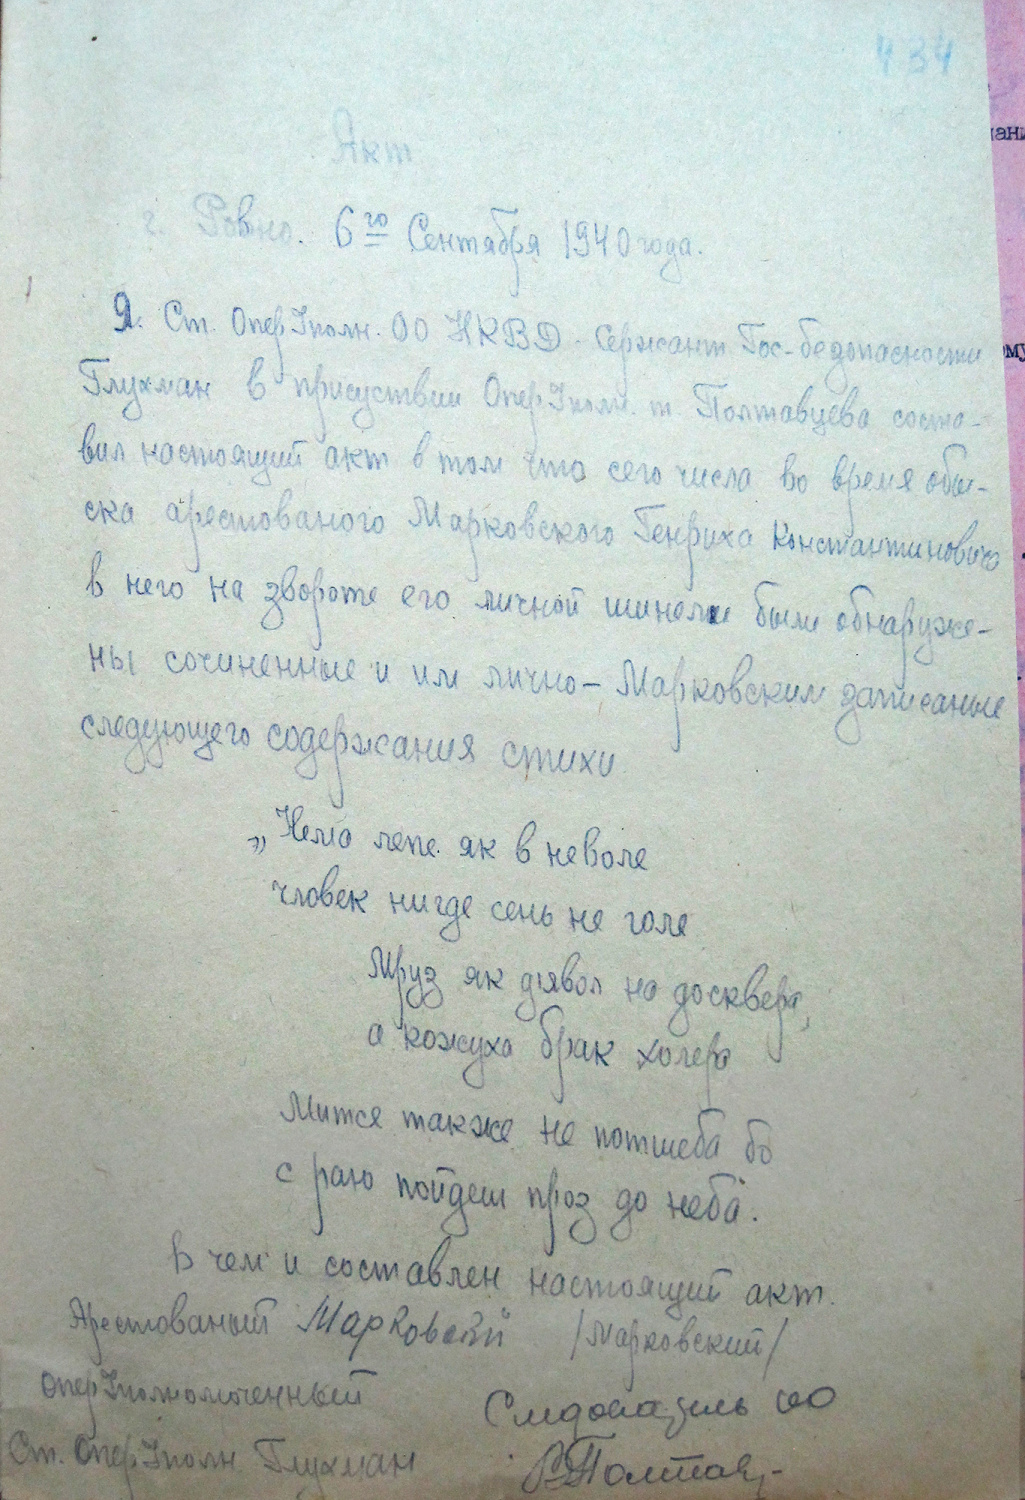 434
Акт
г. Ровно. 6го Сентября 1940 года.
Я. Ст. ОперУполн. ОО НКВД - Сержант Гос-безопасности
Глухман в присуствии ОперУполн. т. Полтавцева соста-
вил настоящий акт в том что сего числа во время обы-
ска арестованого Марковского Генриха Константиновича
в него на звороте его личной шинели были обнаруже-
ны сочиненные и им лично - Марковским записаные
следующего содержания стихи
„Нема лепе як в неволе
человек нигде сень не голе
Мруз як дявол на досквера,
а кожуха брак холера
Мится также не потшеба бо
с раю пойдеш проз до неба".
В чем и составлен настоящий акт.
Арестованый Марковский /Марковский/
ОперУполномоченный
Следователь ОО
Ст. ОперУполн Глухман